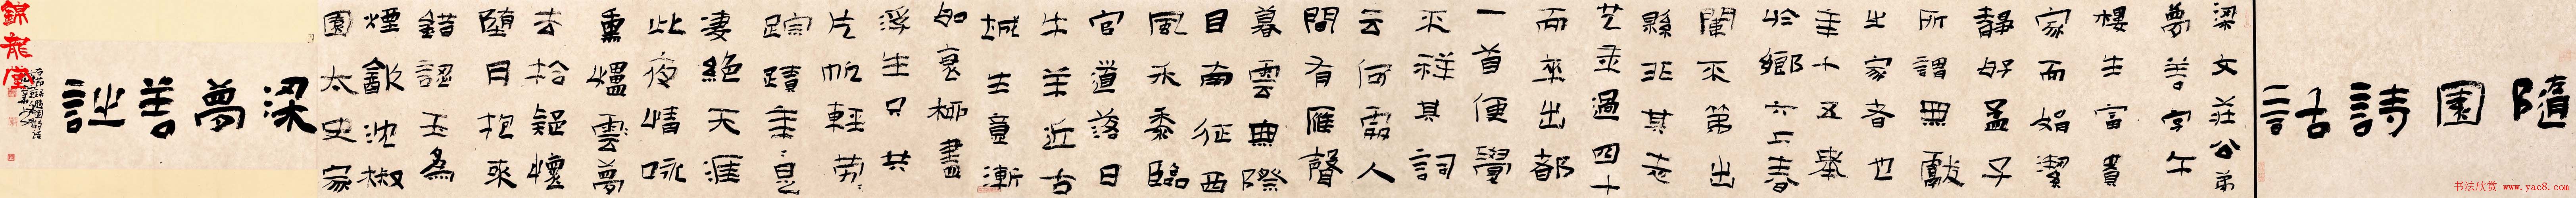 隨園詩話
梁文莊公弟
夢善字午
樓生富貴
家而娟潔
靜好孟子
所謂無獻
之家者也
年十五舉
於鄉六上春
闈不第出
縣非其志
過四十
而卒出都
一首便覺
不祥其詞
云何處人
間有雁聲
暮雲無際
目南征西
風禾黍臨
官道落日
牛羊近古
城生意漸
如衰柳盡
浮生只共
片帆輕勞:
蹤蹟年:是
淒絕天涯
此夜情咏
熏爐雲夢
去拾疑懷
墮月抱來
錯認玉為
煙歛沈椒
園太史家
梁夢善
錦龍堂
书法欣赏 www.yac8.com